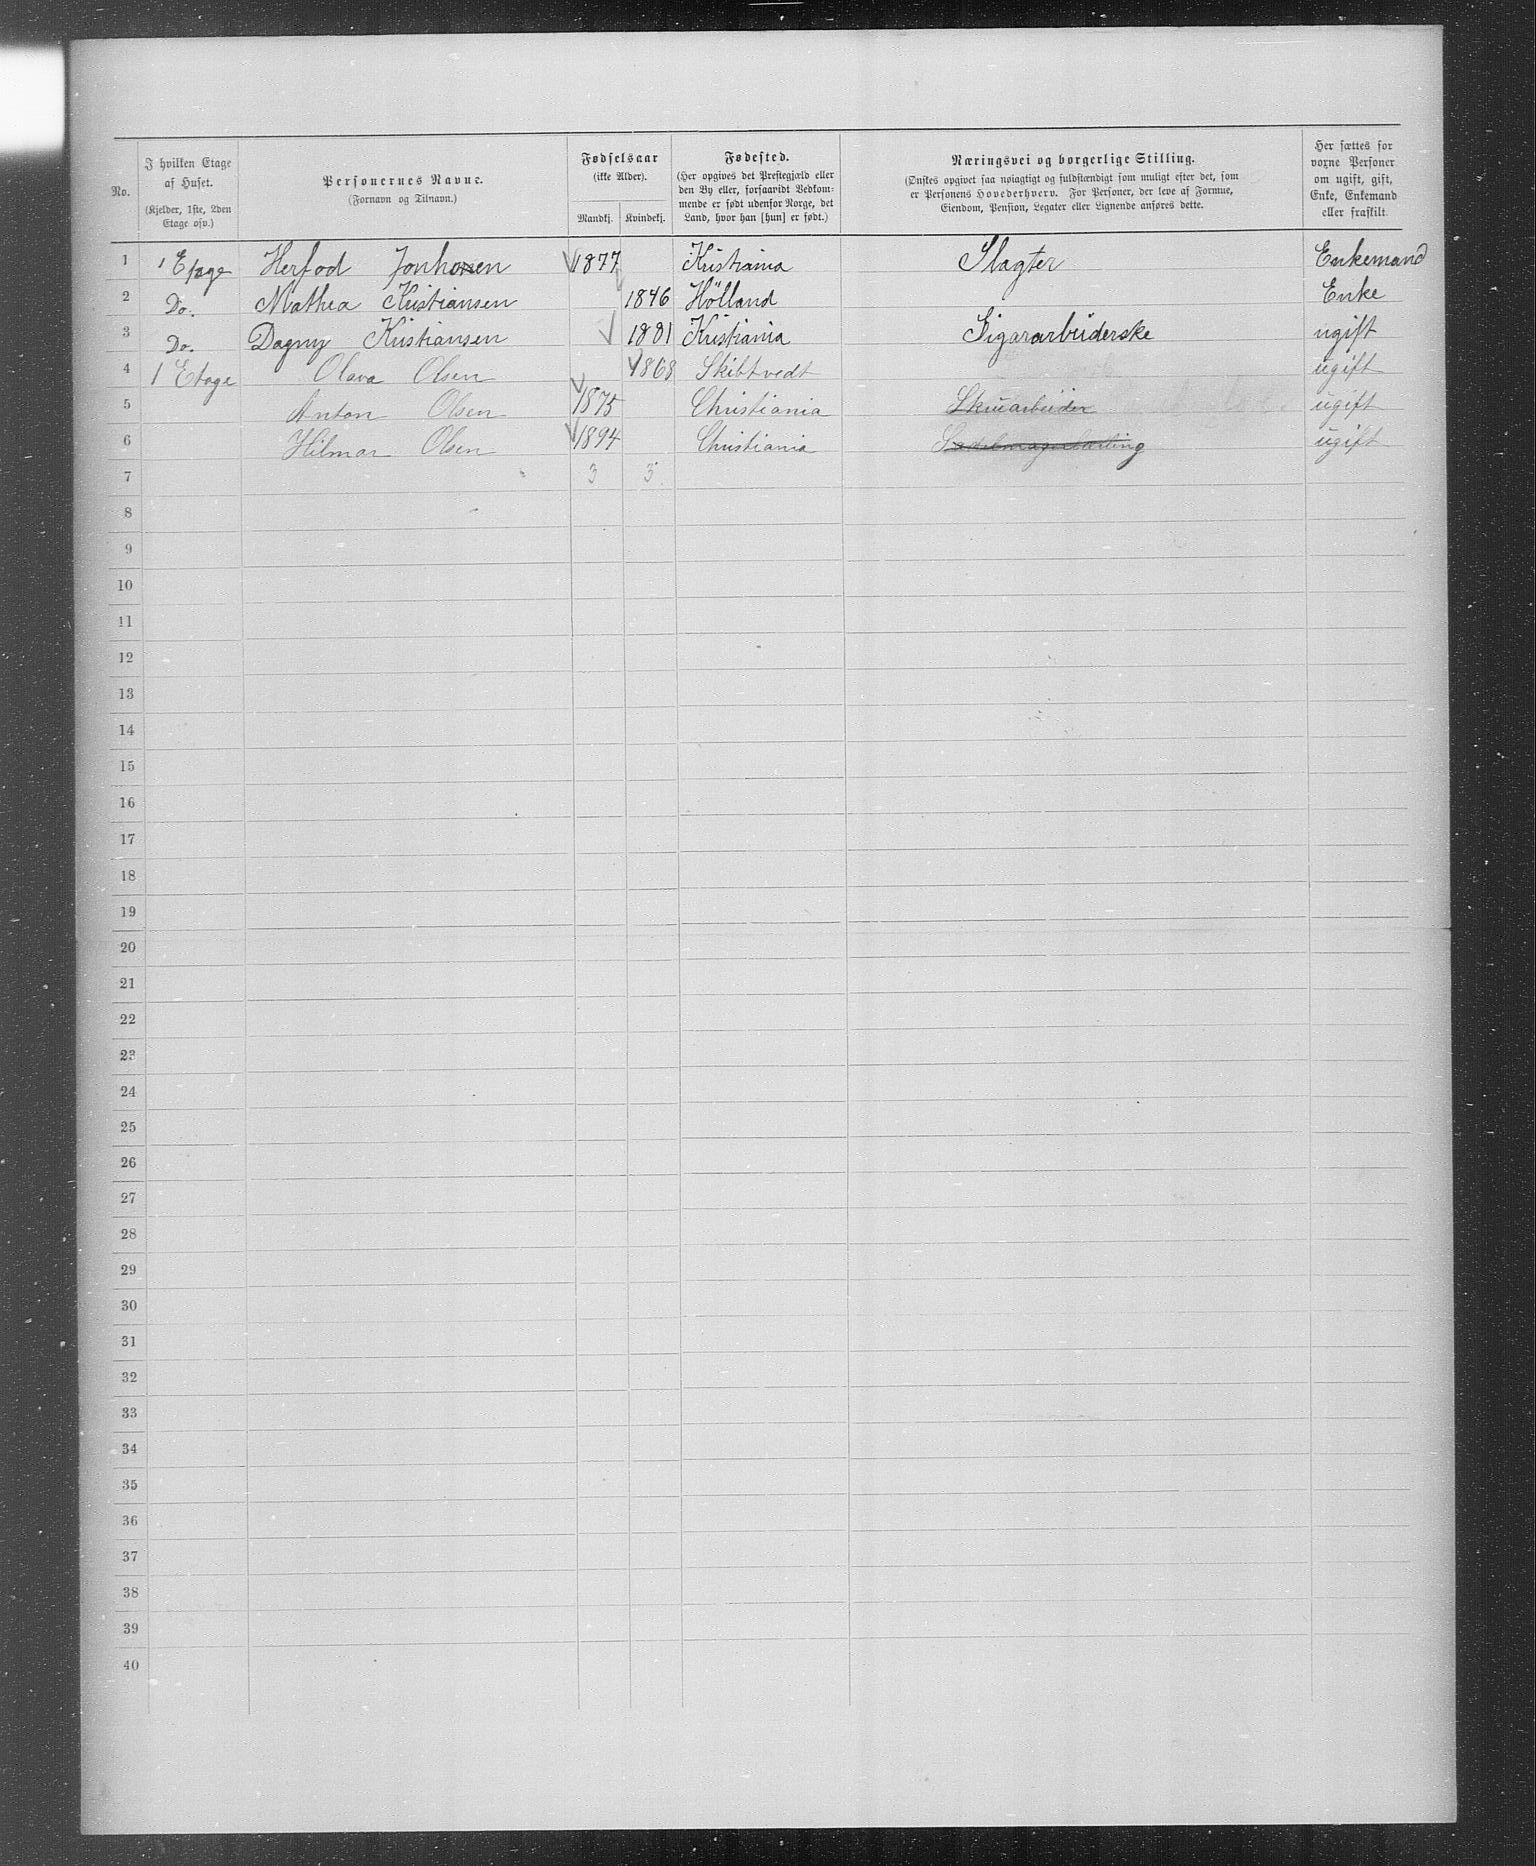 No. | I hvilken Etage af Huset. (Kjelder, 1ste, 2den Etage osv.) | Personernes Navne. (Fornavn og Tilnavn.) | Fødselsaar (ikke Alder). Mandkj. | Kvindekj. | Fødested. (Her opgives det Prestegjæld eller den By eller, forsaavidt Vedkommende er født udenfor Norge, det Land, hvor han [hun] er født.) | Næringsvei og borgerlige Stilling. (Ønskes opgivet saa nøiagtigt og fuldstændigt som muligt efter det, som er Personens Hovederhverv. For Personer, der leve af Formue, Eiendom, Pension, Legater eller Lignende anføres dette. | Her sættes for voxne Personer om ugift, gift, Enke, Enkemand eller fraskilt.
1 | 1 Etage | Herfod Jonhonsen | 1877 | | Kristiania | Slagter | Enkemand
2 | Do. | Mathea Kristiansen | | 1846 | Hölland | | Enke
3 | Do. | Dagny Kristiansen | | 1881 | Kristiania | Sigararbeiderske | ugift
4 | 1 Etage | Olava Olsen | | 1868 | Skibtvedt | | ugift
5 | | Anton Olsen | 1875 | | Christiania | Skruarbeider | ugift
6 | | Hilmar Olsen | 1894 | | Christiania | Sadelmagerlærling | ugift
7 | | | 3 | 3
8
9
10
11
12
13
14
15
16
17
18
19
20
21
22
23
24
25
26
27
28
29
30
31
32
33
34
35
36
37
38
39
40